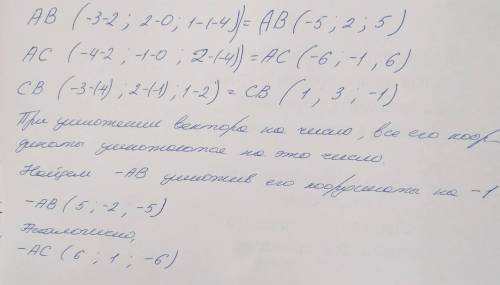 AB (-3-2 ; 2-0 ; 1-(-4)) = AB (-5 ; 2 ; 5)
AC (-4-2 ; -1-0 2-(-4)) = AC (-6 ; -1 , 6)
CB (-3-(4) ; 2-(-1) ; 1-2) = CB (1 , 3 ; -1)
При умножении вектора на число, все его коор-
динаты умножаются на это число.
Найдем -AB умножив его координаты на -1
-AB (5 ; -2 ; -5)
Аналогично,
-AC (6 ; 1 ; -6)